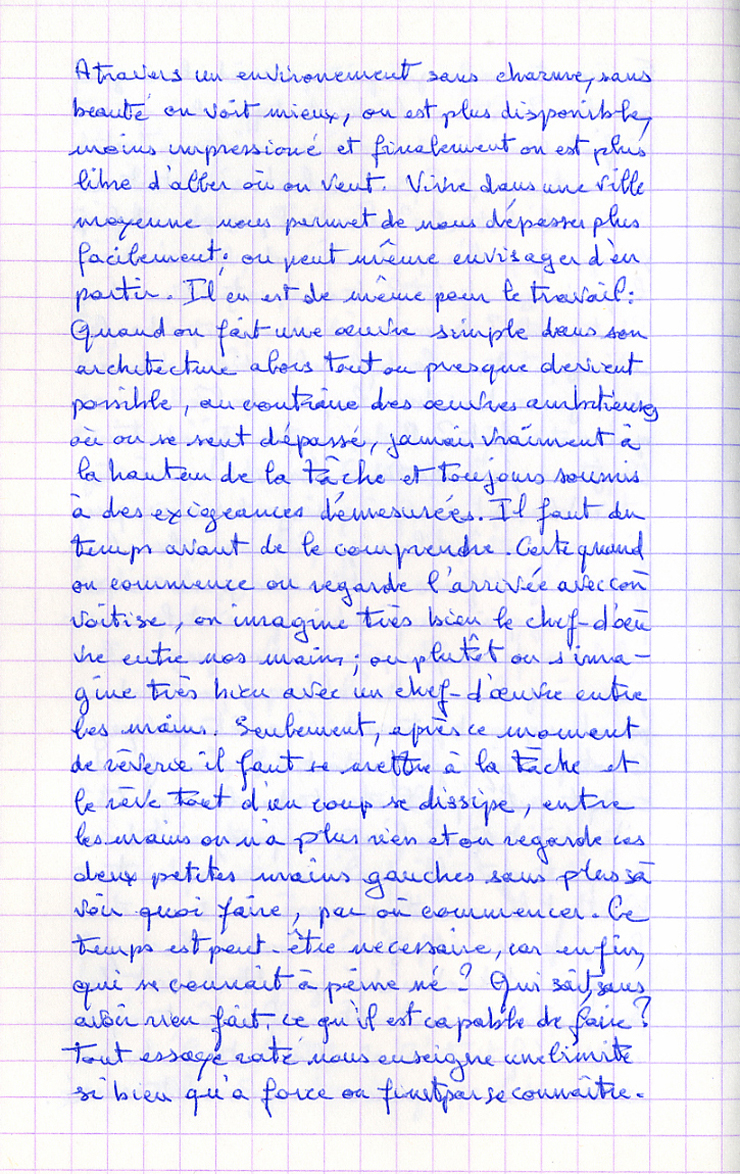 A travers un environement sans charme, sans
beauté on voit mieux, on est plus disponible,
moins impressioné et finalement on est plus
libre d'aller où on veut. Vivre dans une ville
moyenne nous permet de nous dépasser plus
facilement; on peut même envisager d'en
partir. Il en est de même pour le travail:
Quand on fait une œuvre simple dans son
architecture alors tout ou presque devient
possible, au contraire des œuvres ambitieuses
où on se sent dépassé, jamais vraiment à
la hauteur de la tâche et toujours soumis
à des exigeances démesurées. Il faut du
temps avant de le comprendre. Certe quand
on commence on regarde l'arrivée avec con
voitise, on imagine très bien le chef-d'œu
vre entre nos mains; ou plutôt on s'ima-
gine très bien avec un chef-d'œuvre entre
les mains. Seulement, après ce moment
de rêverie il faut se mettre à la tâche et
le rêve tout d'un coup se dissipe, entre
les mains on n'a plus rien et on regarde ces
deux petites mains gauches sans plus sa
voir quoi faire, par où commencer. Ce
temps est peut-être necessaire, car enfin,
qui se connait à peine né? Qui sait, sans
avoir rien fait, ce qu'il est capable de faire?
Tout essaye raté nous enseigne une limite
si bien qu'a force on finit par se connaître.